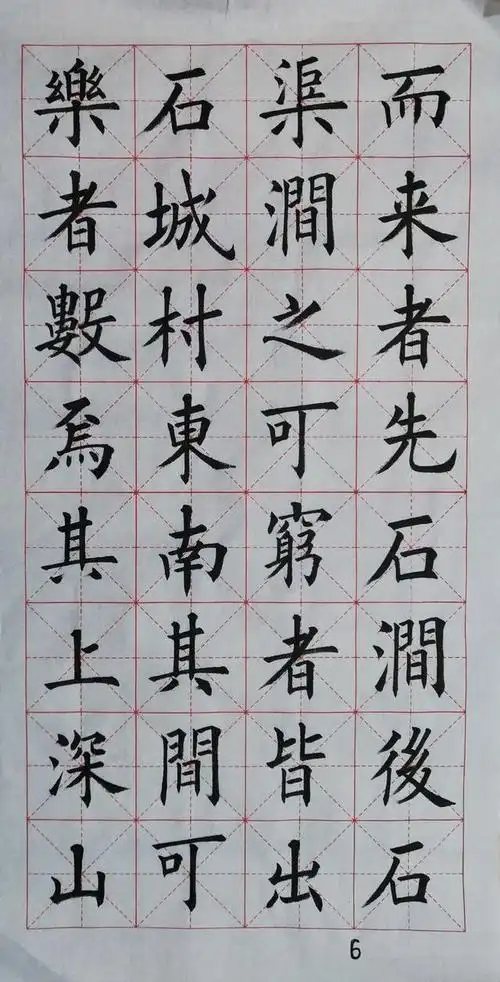 而来者先石澗後石
渠澗之可窮者皆出
石城村東南其間可
樂者數焉其上深山
6